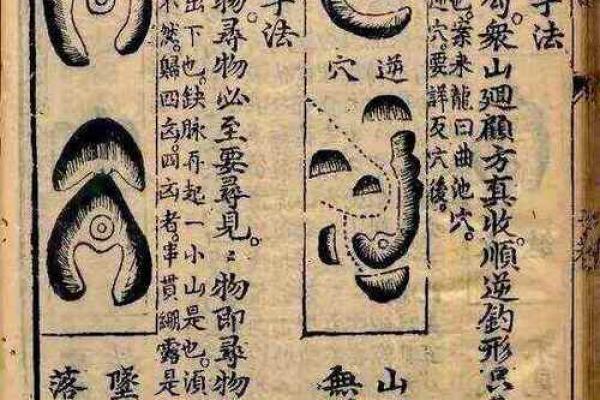 法
勾。眾山廻顧方真收順逆釣形只
也。案来龍曰曲池穴。
逆穴。要詳反穴後。
逆穴
山無
字法
物。尋物必至要尋見。〻物即尋物
出下也。缺脉再起一小山是也。湏
不然。歸四凶。四凶者。串貫綳露是
墜落